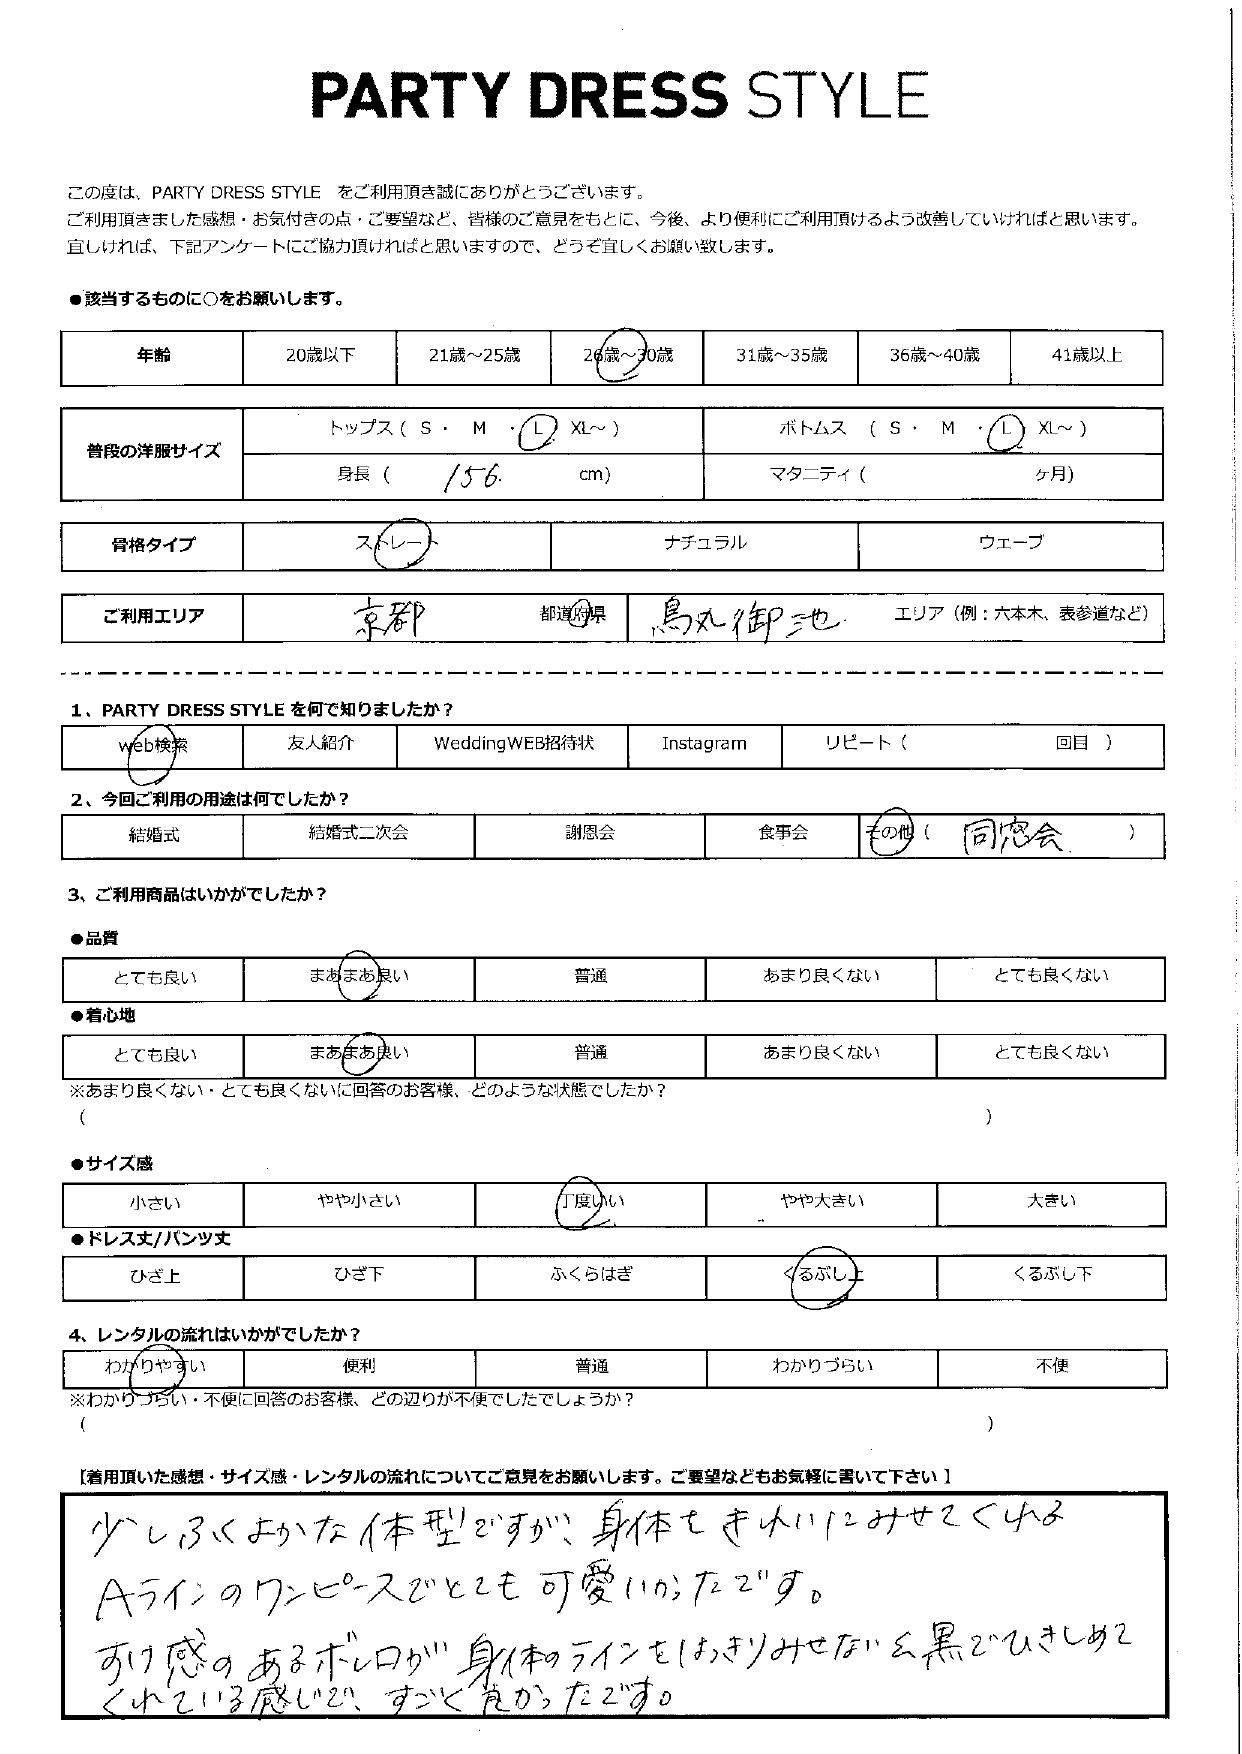 PARTY DRESS STYLE
この度は、PARTY DRESS STYLE をご利用頂き誠にありがとうございます。
ご利用頂きました感想・お気付きの点・ご要望など、皆様のご意見をもとに、今後、より便利にご利用頂けるよう改善していければと思います。
宜しければ、下記アンケートにご協力頂ければと思いますので、どうぞ宜しくお願い致します。
●該当するものに○をお願いします。
年齢 20歳以下 21歳～25歳 26歳～30歳 31歳～35歳 36歳～40歳 41歳以上
普段の洋服サイズ トップス ( S ・ M ・ L XL～ ) ボトムス ( S ・ M ・ L XL～ )
身長 ( 156. cm) マタニティ ( ヶ月)
骨格タイプ ストレート ナチュラル ウェーブ
ご利用エリア 京都 都道府県 烏丸御池 エリア（例：六本木、表参道など）
1、PARTY DRESS STYLE を何で知りましたか？
web検索 友人紹介 WeddingWEB招待状 Instagram リピート ( 回目 )
2、今回ご利用の用途は何でしたか？
結婚式 結婚式二次会 謝恩会 食事会 その他 ( 同窓会 )
3、ご利用商品はいかがでしたか？
●品質
とても良い まあまあ良い 普通 あまり良くない とても良くない
●着心地
とても良い まあまあ良い 普通 あまり良くない とても良くない
※あまり良くない・とても良くないに回答のお客様、どのような状態でしたか？
( )
●サイズ感
小さい やや小さい 丁度いい やや大きい 大きい
●ドレス丈/パンツ丈
ひざ上 ひざ下 ふくらはぎ くるぶし上 くるぶし下
4、レンタルの流れはいかがでしたか？
わかりやすい 便利 普通 わかりづらい 不便
※わかりづらい・不便に回答のお客様、どの辺りが不便でしたでしょうか？
( )
【着用頂いた感想・サイズ感・レンタルの流れについてご意見をお願いします。ご要望などもお気軽に書いて下さい】
少しふくよかな体型ですが、身体をきれいにみせてくれる
Aラインのワンピースでとても可愛いかったです。
すけ感のあるボレロが身体のラインをはっきりみせない&黒でひきしめて
くれている感じで、すごく良かったです。